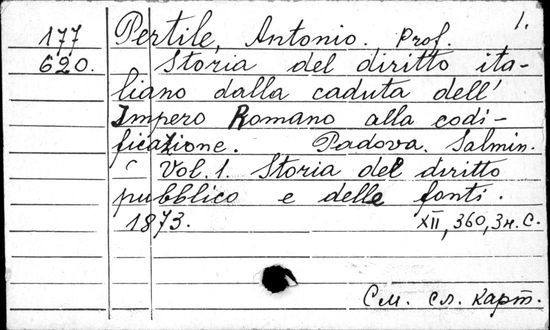 1.
177 Pertile, Antonio. Prof.
620. Storia del diritto ita-
liano dalla caduta dell'
Impero Romano alla codi-
ficazione. Padova. Salmin.
Vol. 1. Storia del diritto
pubblico e delle fonti.
1873. XII, 360, 3 н. с.
См. сл. карт.